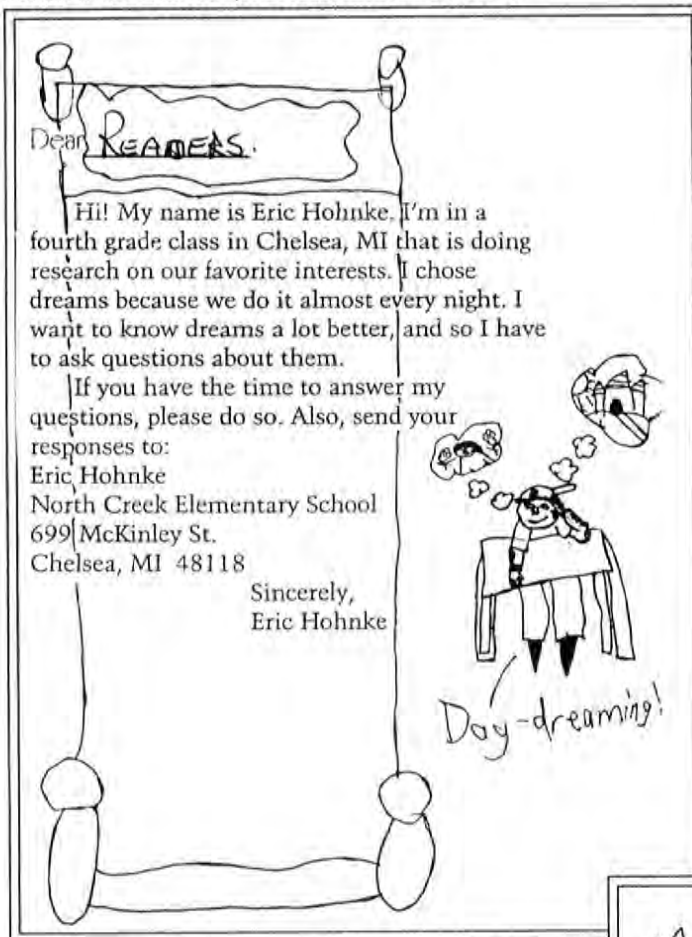 Dear READERS.
Hi! My name is Eric Hohnke. I'm in a
fourth grade class in Chelsea, MI that is doing
research on our favorite interests. I chose
dreams because we do it almost every night. I
want to know dreams a lot better, and so I have
to ask questions about them.
If you have the time to answer my
questions, please do so. Also, send your
responses to:
Eric Hohnke
North Creek Elementary School
699 McKinley St.
Chelsea, MI 48118
Sincerely,
Eric Hohnke
Day-dreaming!